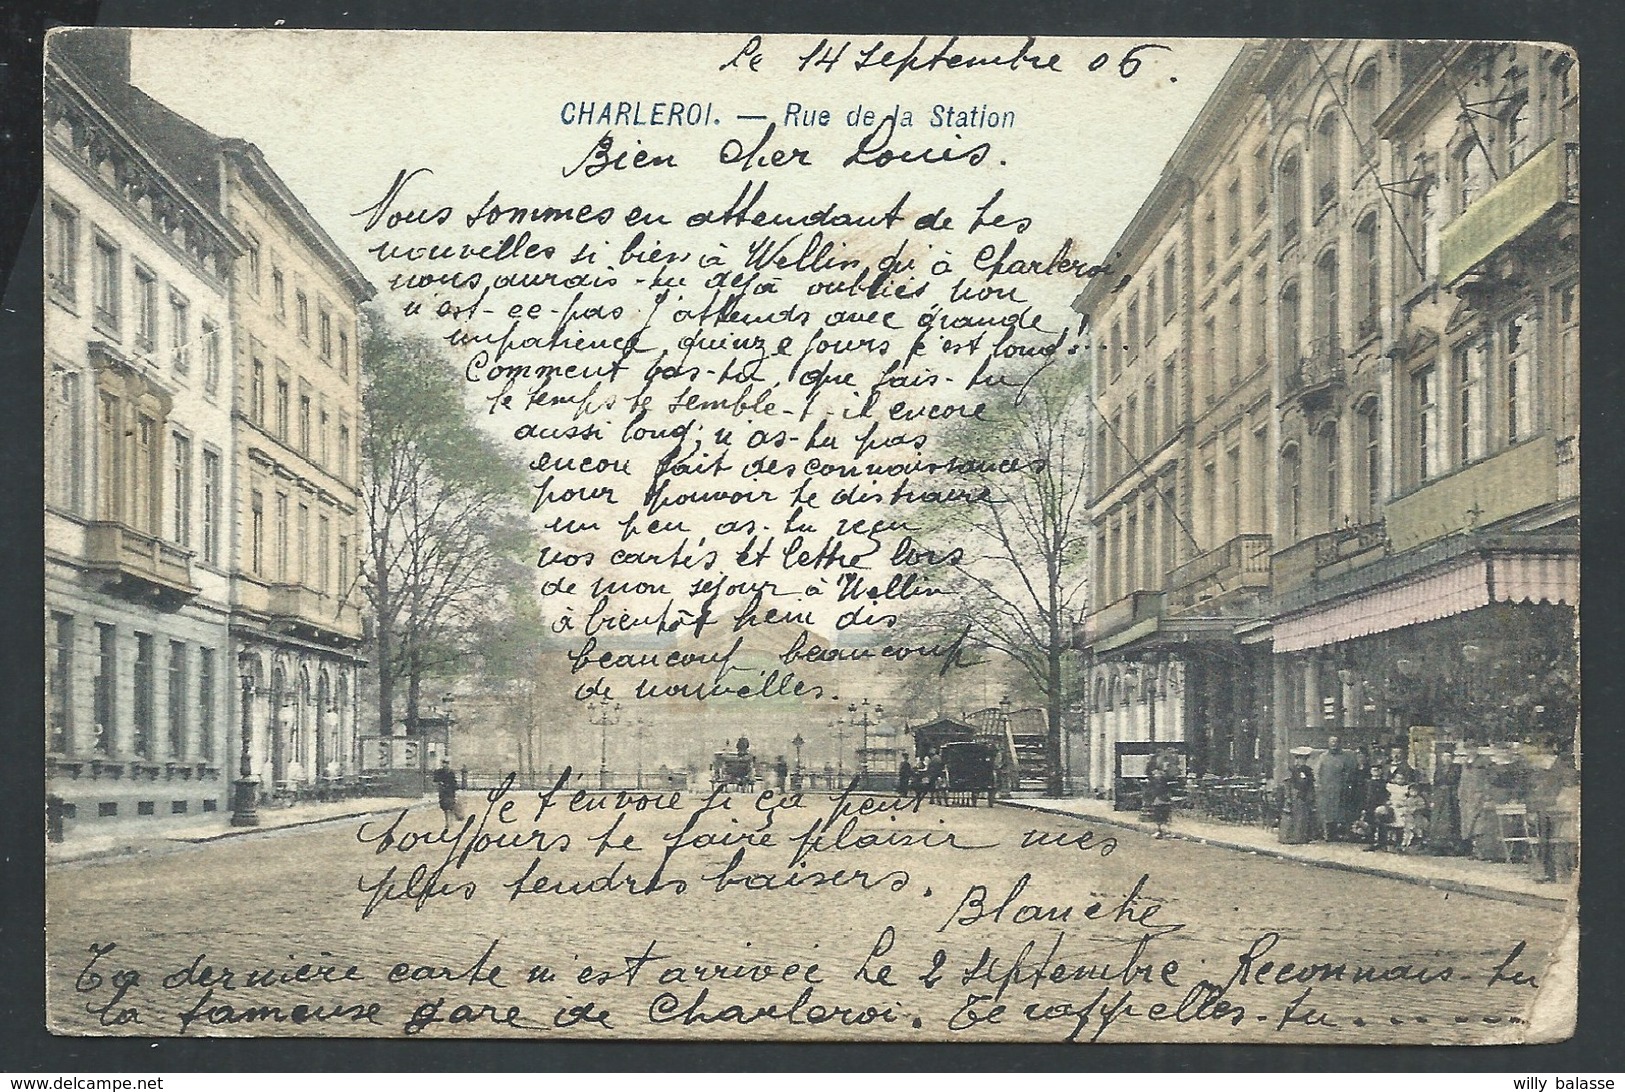 le 14 septembre 06.
CHARLEROI. — Rue de la Station
Bien cher Louis.
Nous sommes en attendant de tes
nouvelles si bien à Wellin qu'à Charleroi,
nous aurais-tu déjà oubliés, non
n'est-ce-pas. J'attends avec grande
impatience, quinze jours c'est long!....
Comment vas-tu, que fais-tu
le temps te semble-t-il encore
aussi long; n'as-tu pas
encore fait des connaissances
pour pouvoir te distraire
un peu as-tu reçu
nos cartes et lettre lors
de mon séjour à Wellin
à bientôt hein dis
beaucoup, beaucoup
de nouvelles.
Je t'envoie si ça peut
toujours te faire plaisir mes
plus tendres baisers.
Blanche
Ta dernière carte m'est arrivée le 2 septembre. Reconnais-tu
la fameuse gare de Charleroi. Te rappelles-tu.......
willy balasse